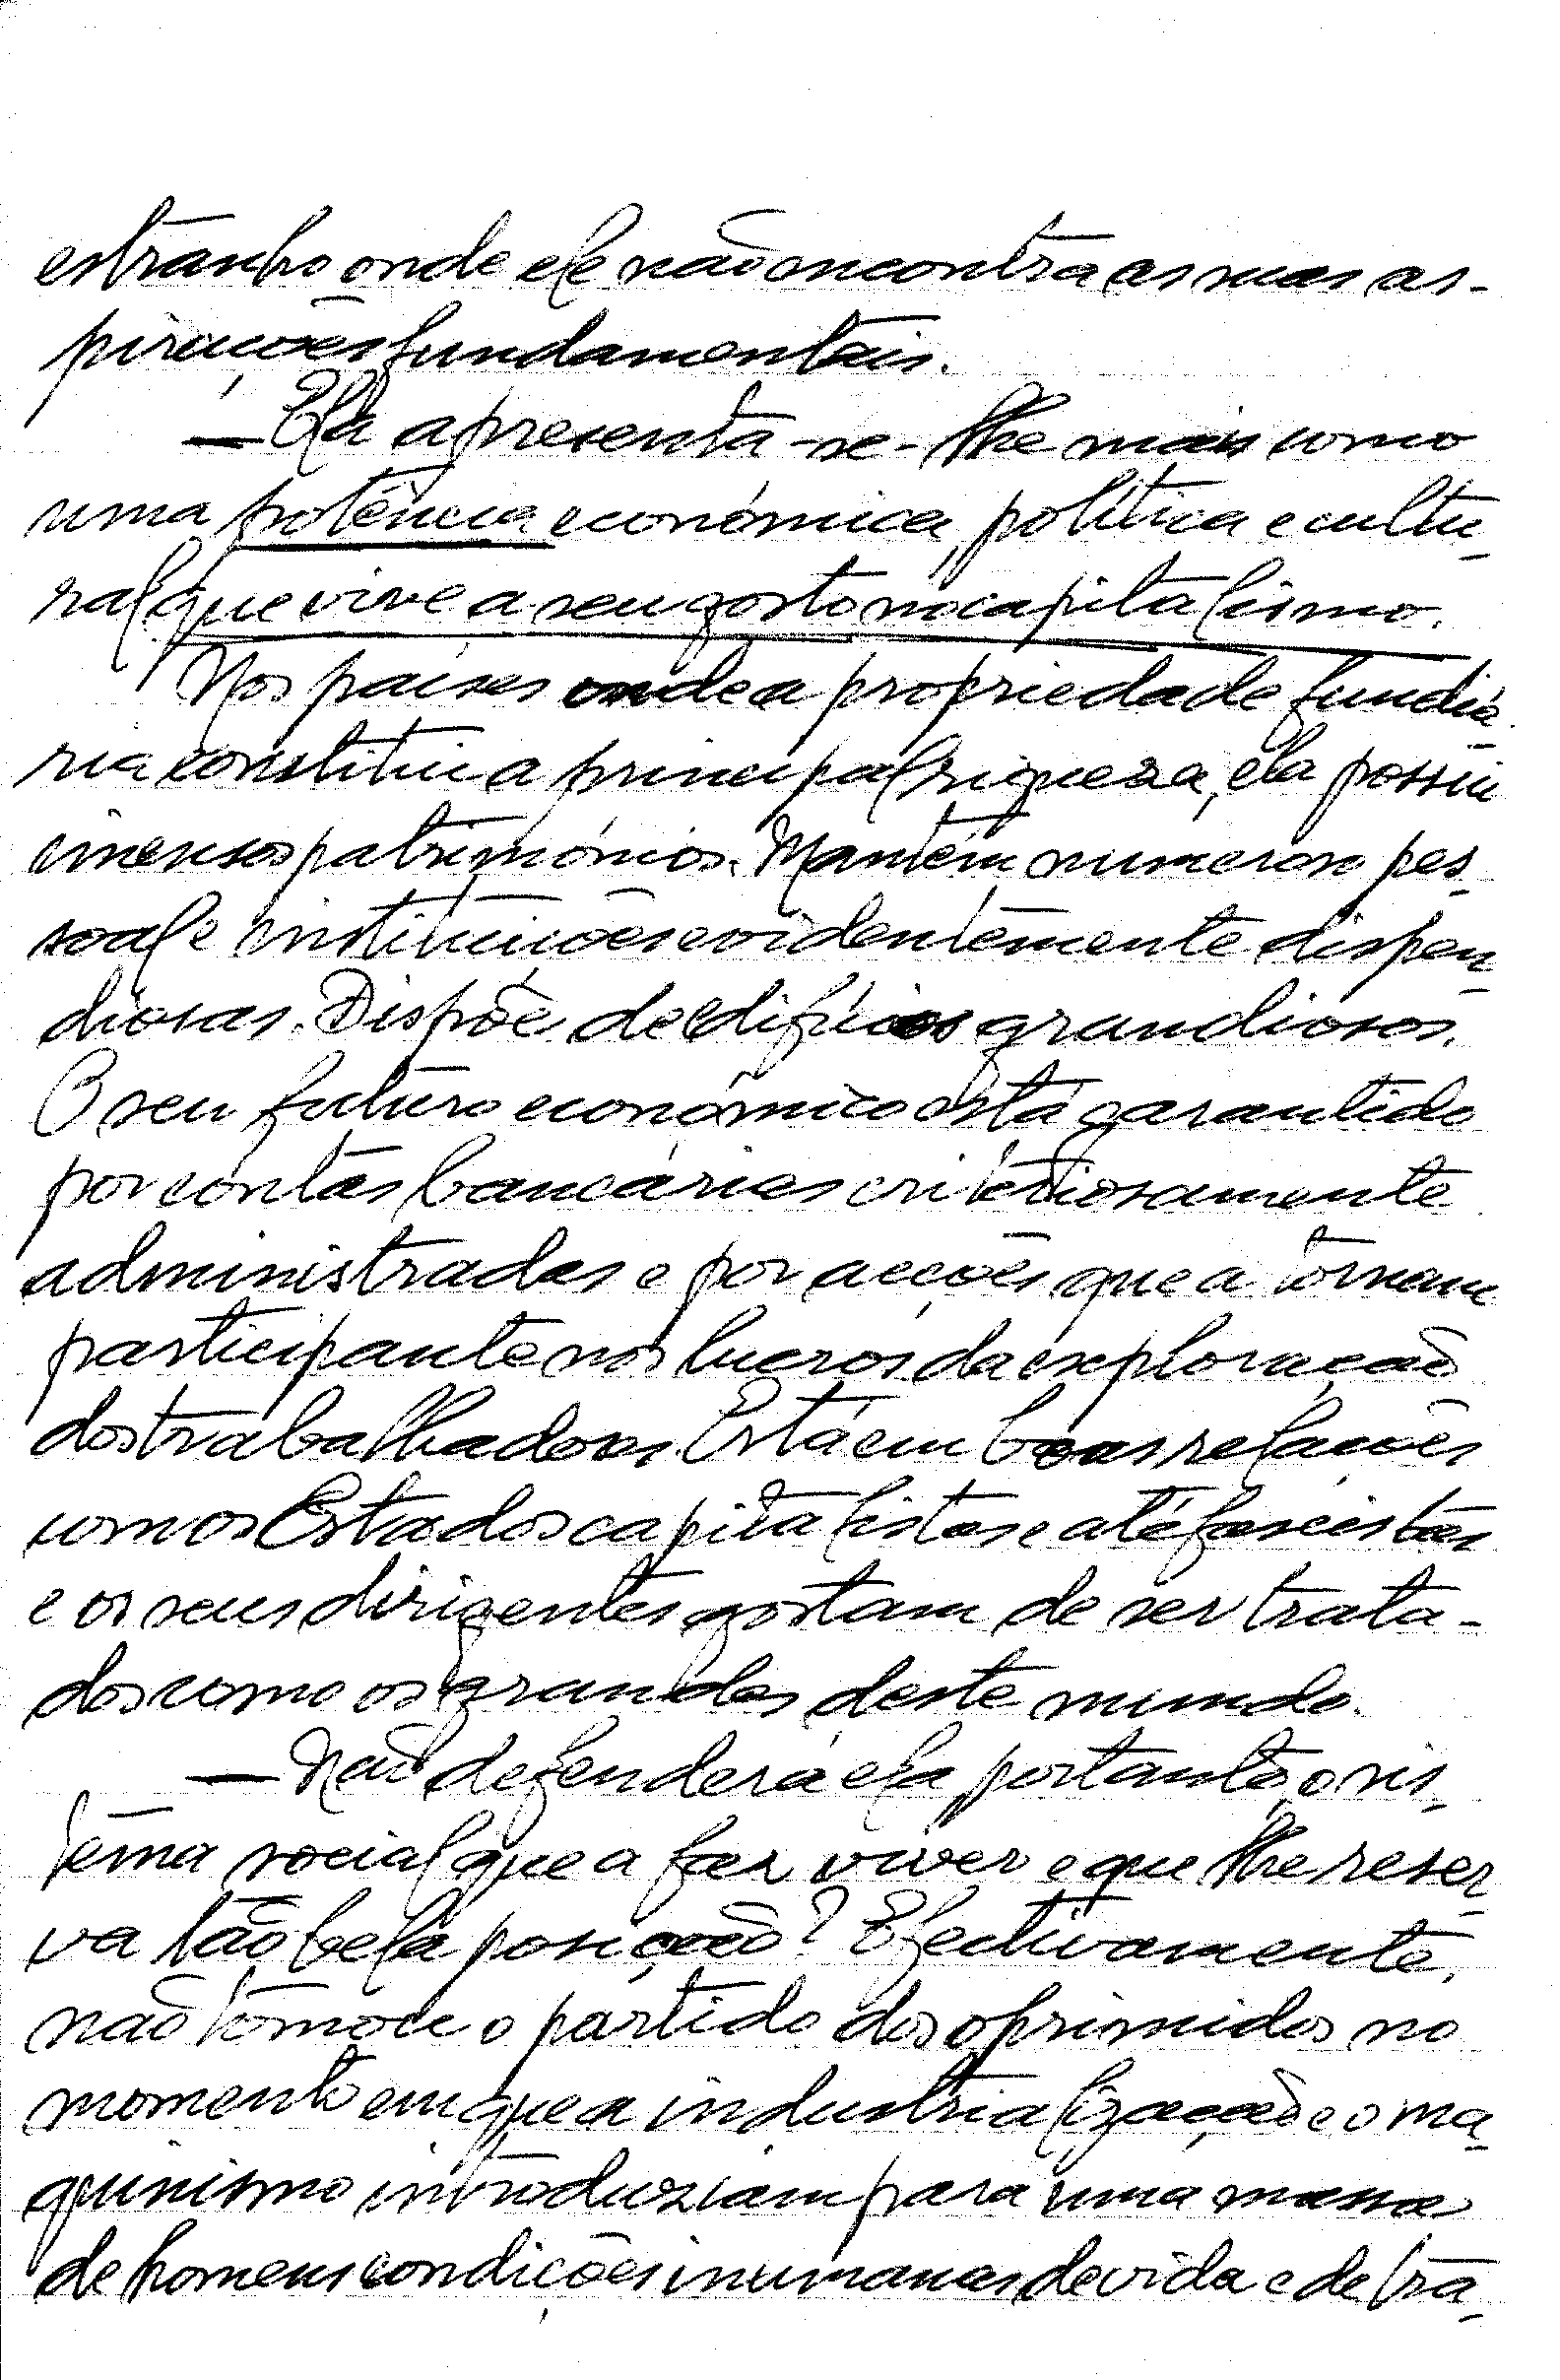 estranho onde ele não encontra as suas as-
pirações fundamentais.
— Ela apresenta-se-lhe mais como
uma potência económica, política e cultu-
ral que vive a seu gosto no capitalismo.
Nos países onde a propriedade fundiá-
ria constitui a principal riqueza, ela possui
imensos patrimónios. Mantém numeroso pes-
soal e instituições evidentemente dispen-
diosas. Dispõe de edifícios grandiosos.
O seu futuro económico está garantido
por contas bancárias criteriosamente
administradas e por acções que a tornam
participante nos lucros da exploração
dos trabalhadores. Está em boas relações
com os Estados capitalistas e até fascistas
e os seus dirigentes gostam de ser trata-
dos como os grandes deste mundo.
— Não defenderá ela portanto, o sis-
tema social que a faz viver e que lhe reser-
va tão bela posição? Efectivamente,
não tomou o partido dos oprimidos no
momento em que a industrialização e o ma-
quinismo introduziam para uma massa
de homens condições inumanas de vida e de tra-